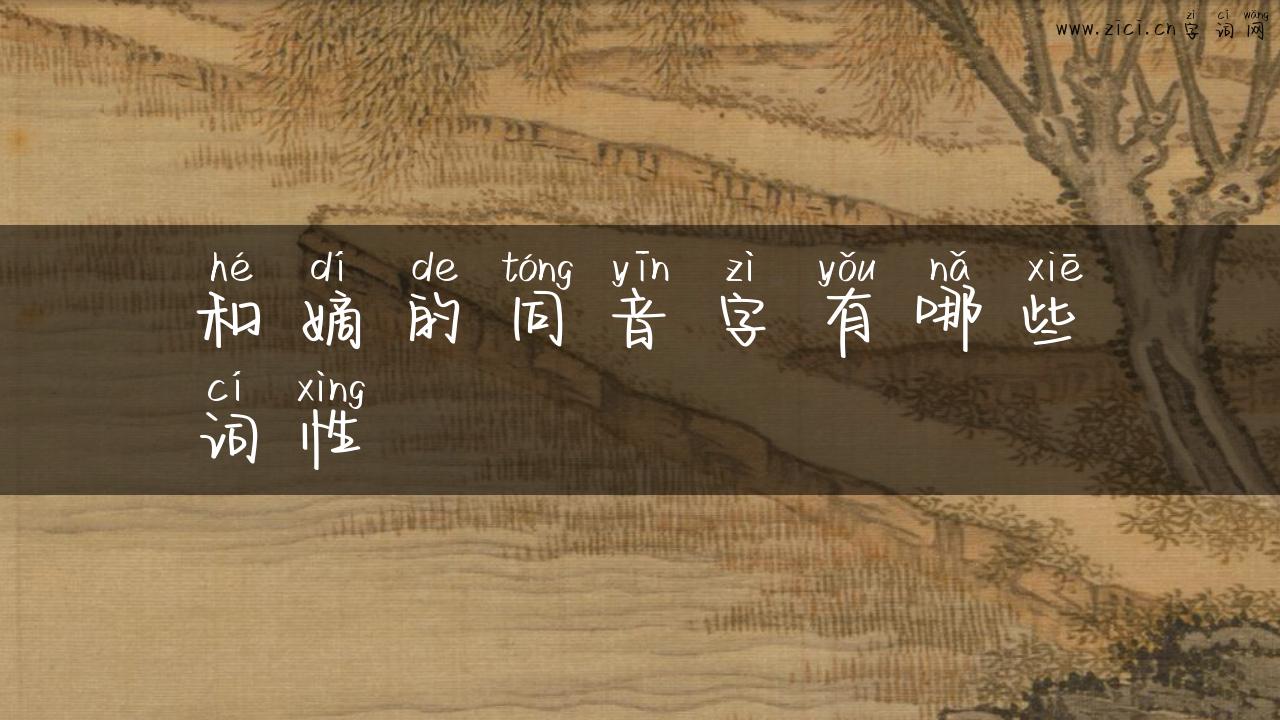 zì cí wǎng
www.zici.cn字词网
hé dí de tóng yīn zì yǒu nǎ xiē
和嫡的同音字有哪些
cí xìng
词性